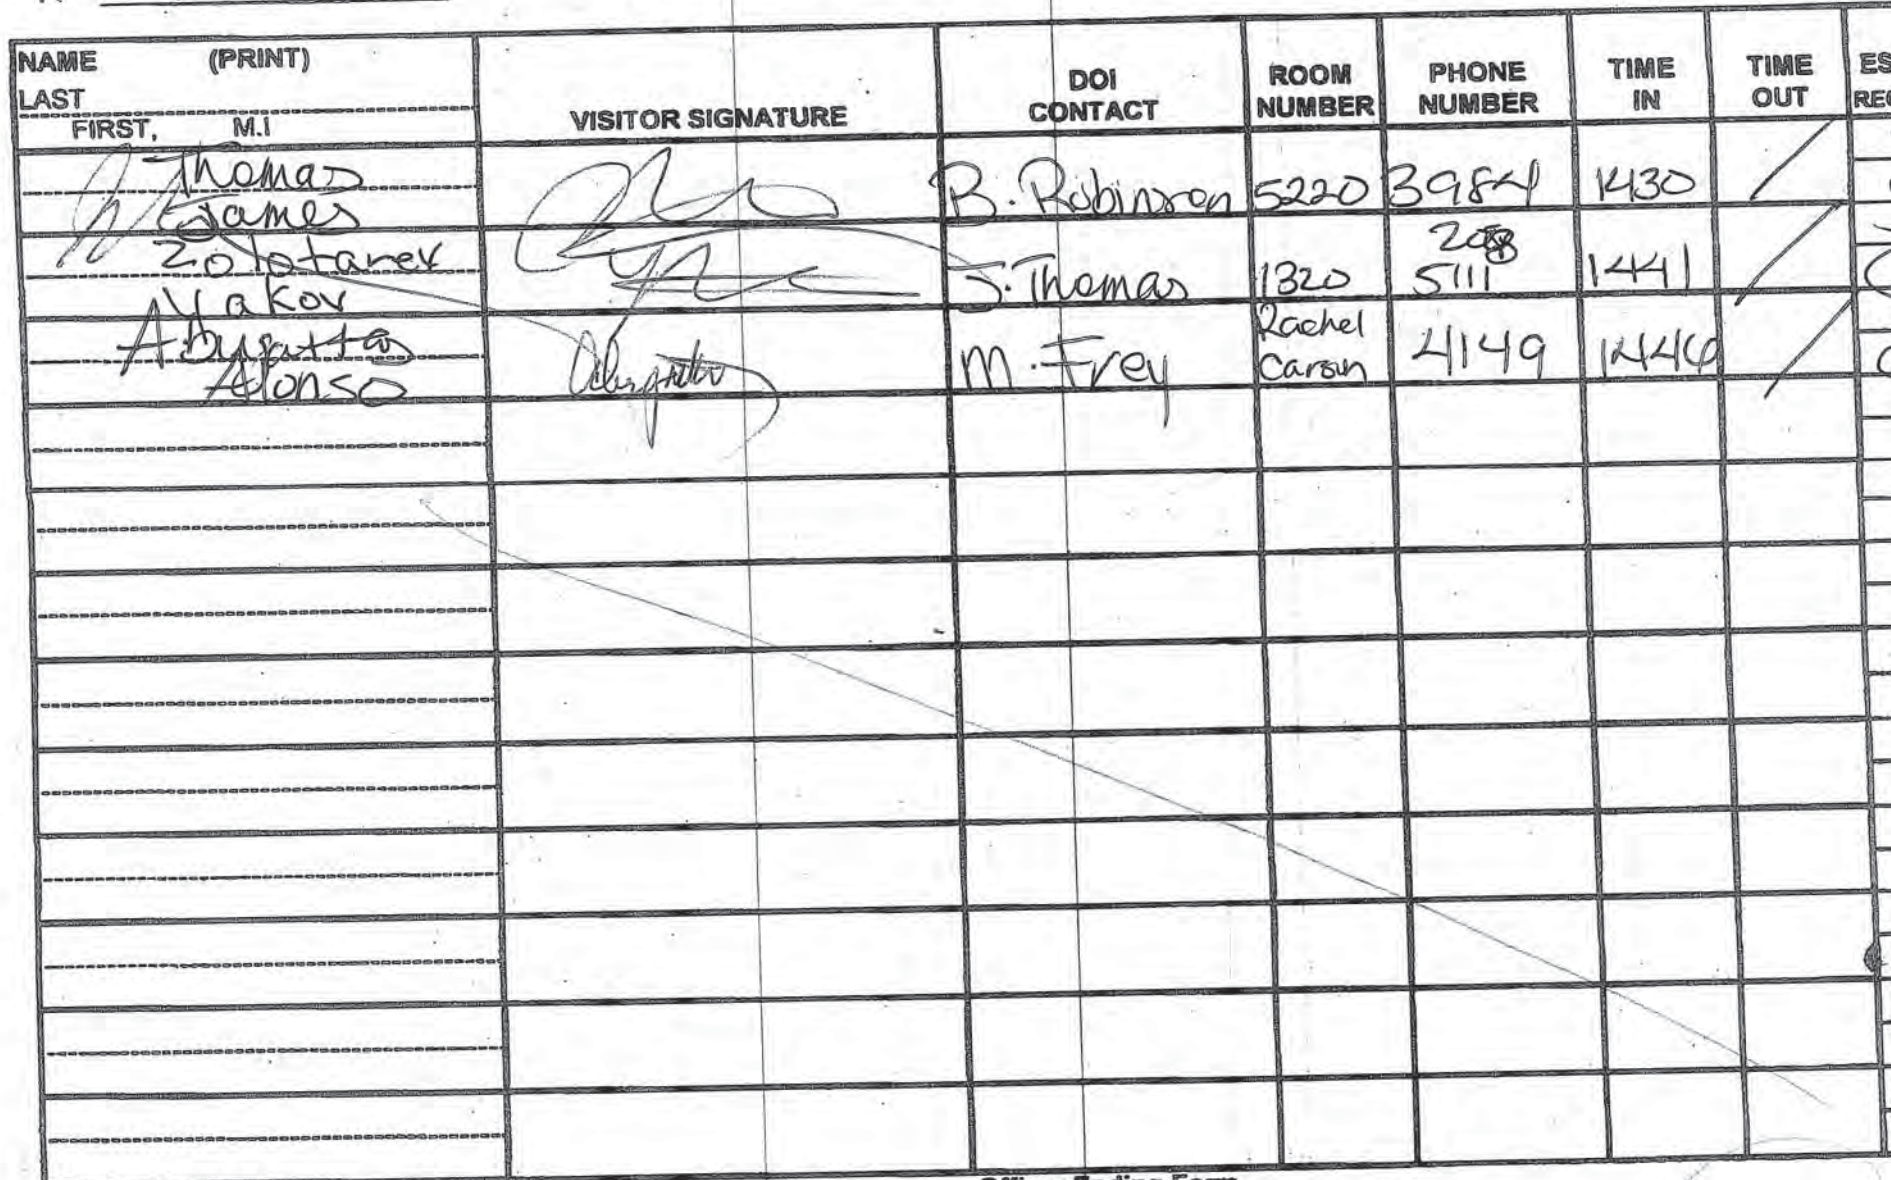 NAME (PRINT)
LAST
FIRST, M.I
VISITOR SIGNATURE
DOI CONTACT
ROOM NUMBER
PHONE NUMBER
TIME IN
TIME OUT
Thomas
James
B. Robinson 5220 3984 1430
Zolotarev
Yakov
J. Thomas 1320 208 5111 1441
Abugattas
Alonso
M. Frey Rachel Carson 4149 1446